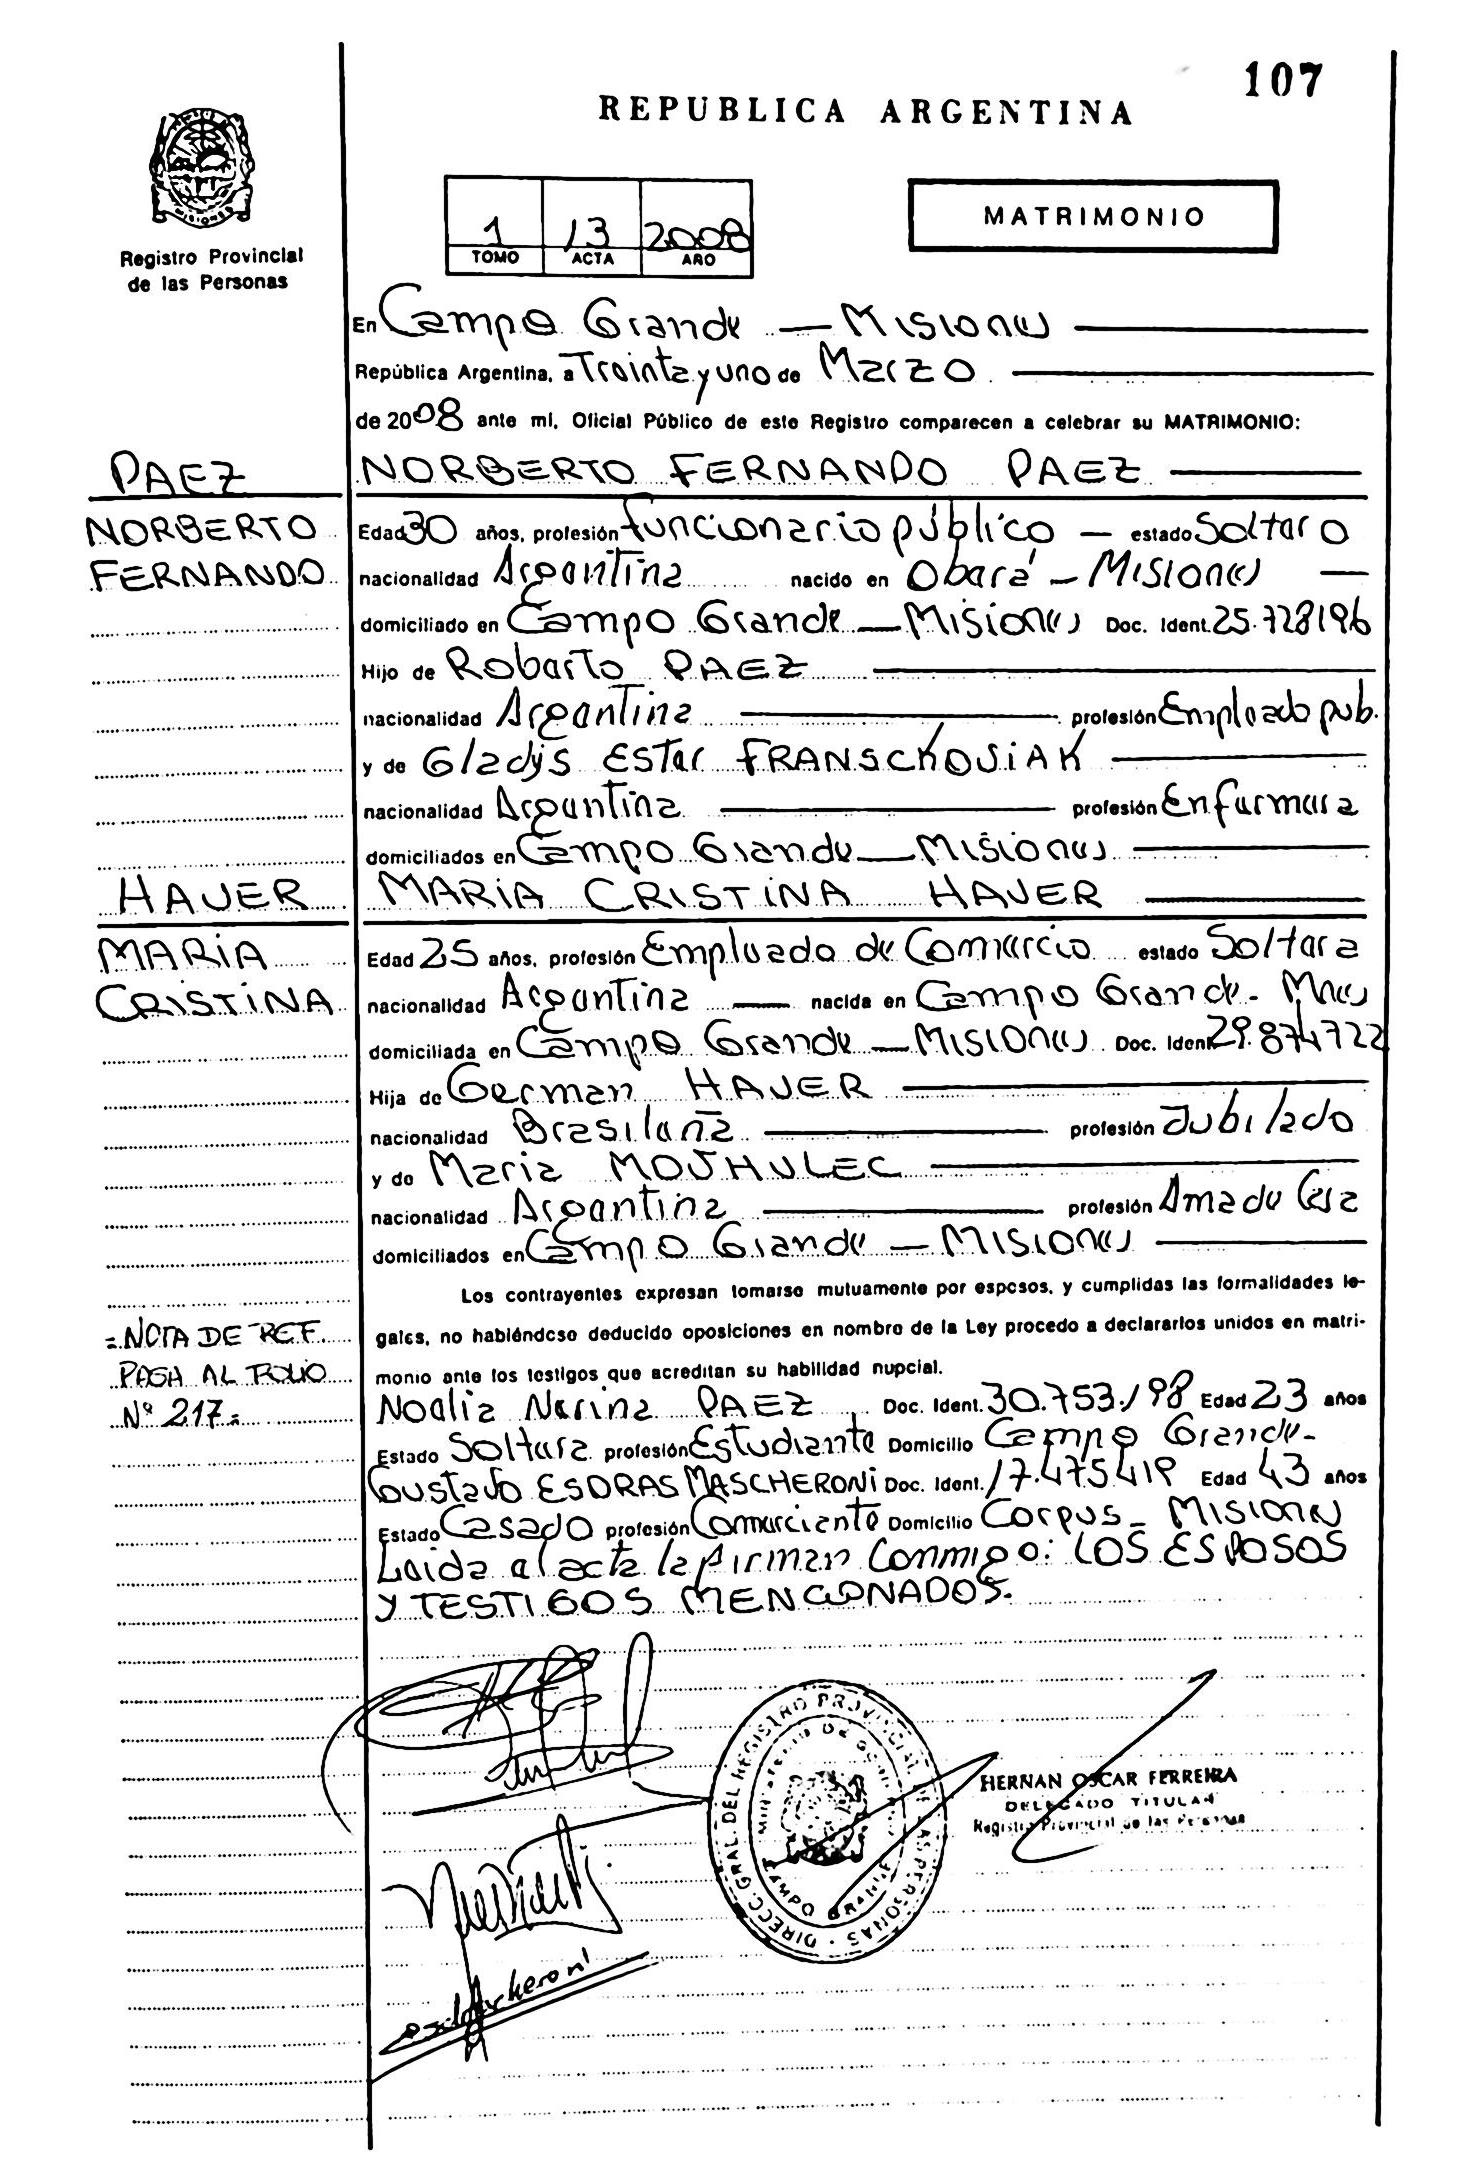 107
REPUBLICA ARGENTINA
MISIONES
Registro Provincial
de las Personas
1 13 2008
TOMO ACTA AÑO
MATRIMONIO
En Campo Grande — Misiones
República Argentina, a Treinta y uno de Marzo
de 2008 ante mí, Oficial Público de este Registro comparecen a celebrar su MATRIMONIO:
PAEZ
NORBERTO FERNANDO PAEZ
NORBERTO
FERNANDO
Edad 30 años, profesión funcionario público — estado Soltero
nacionalidad Argentina nacido en Oberá — Misiones —
domiciliado en Campo Grande — Misiones Doc. Ident. 25.728196
Hijo de Roberto PAEZ
nacionalidad Argentina profesión Empleado pub.
y de Gladys Ester FRANSCKOSIAK
nacionalidad Argentina profesión Enfermera
domiciliados en Campo Grande — Misiones
HAUER
MARIA CRISTINA HAUER
MARIA
CRISTINA
Edad 25 años, profesión Empleada de Comercio estado Soltera
nacionalidad Argentina — nacida en Campo Grande - Mnes
domiciliada en Campo Grande — Misiones Doc. Ident. 29.874722
Hija de German HAUER
nacionalidad Brasileña profesión Jubilado
y de Maria MOJHULEC
nacionalidad Argentina profesión Ama de Casa
domiciliados en Campo Grande — Misiones
Los contrayentes expresan tomarse mutuamente por esposos, y cumplidas las formalidades le-
gales, no habiéndose deducido oposiciones en nombre de la Ley procedo a declararlos unidos en matri-
monio ante los testigos que acreditan su habilidad nupcial.
= NOTA DE REF.
PASA AL FOLIO
Nº 217 =
Noelia Narina PAEZ, Doc. Ident. 30.753.198 Edad 23 años
Estado Soltera profesión Estudiante Domicilio Campo Grande-
Gustavo ESDRAS MASCHERONI Doc. Ident. 17.475419 Edad 43 años
Estado Casado profesión Comerciante Domicilio Corpus - Misiones
Leida el acta la firman Conmigo: LOS ESPOSOS
Y TESTIGOS MENCIONADOS.
DIRECC. GRAL. DEL REGISTRO PROVINCIAL DE LAS PERSONAS
MINISTERIO DE GOBIERNO
CAMPO GRANDE
HERNAN OSCAR FERREIRA
DELEGADO TITULAR
Registro Provincial de las Personas